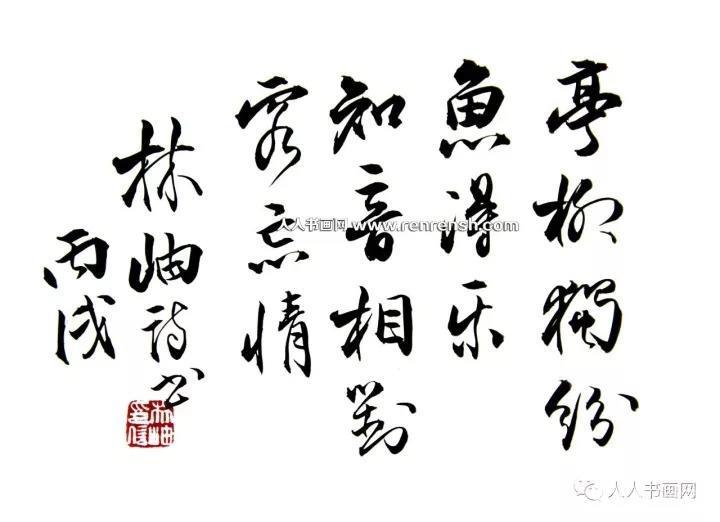 亭柳獨紛
魚得乐
知音相對
客忘情
林岫诗书
丙戌
人人书画网 www.renrensh.com
人人书画网